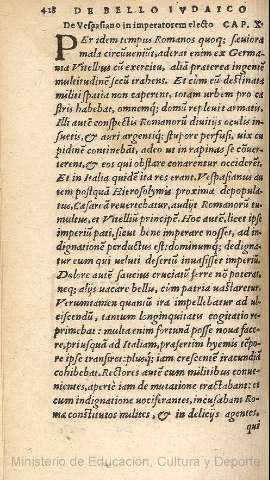 418 DE BELLO IVDAICO
De Vespasiano in imperatorem electo CAP. X
PEr idem tempus Romanos quoq; sæuiora
mala circũueniũt, aderat enim ex Germa
nia Vitellius cũ exercitu, aliã præterea ingentẽ
multitudinẽ secũ trahens. Et cùm eũ destinata
militi spatia non caperent, totam urbem pro ca
stris habebat, omnemq; domũ repleuit armatis.
Illi autẽ conspectis Romanorũ diuitijs oculis in-
suetis, & auri argentiq; stupore perfusi, uix cu
pidinẽ continebãt, adeo ut in rapinas se cõuer-
terent, & eos qui obstare conarentur occiderẽt.
Et in Italia quidẽ ita res erant. Vespasianus au
tem postquã Hierosolymis proxima depopula-
tus, Cæsareã reuertebatur, audijt Romanorũ tu-
multus, et Vitelliũ principẽ. Hoc autẽ, licet ipse
imperiũ pati, sicut bene imperare nosset, ad in-
dignationẽ perductus est: dominumq; dedigna-
tur eum qui ueluti desertũ inuasisset imperiũ.
Dolore autẽ saucius cruciatũ ferre nõ poterat,
neq; alijs uacare bellu, cùm patria uastaretur.
Veruntamen quantũ ira impellebatur ad ul-
ciscendũ, tantum longinquitatis cogitatio re-
primebat: multa enim fortunã posse noua face-
re, priusquã ad Italiam, præsertim hyemis tẽpo-
re ipse transiret: plusq; iam crescentẽ iracundiã
cohibebat. Rectores autẽ cum militibus conue-
nientes, apertè iam de mutatione tractabant: et
cum indignatione uociferantes, incusabant Ro-
mæ constitutos milites, & in delicijs agentes,
qui
Ministerio de Educación, Cultura y Deporte